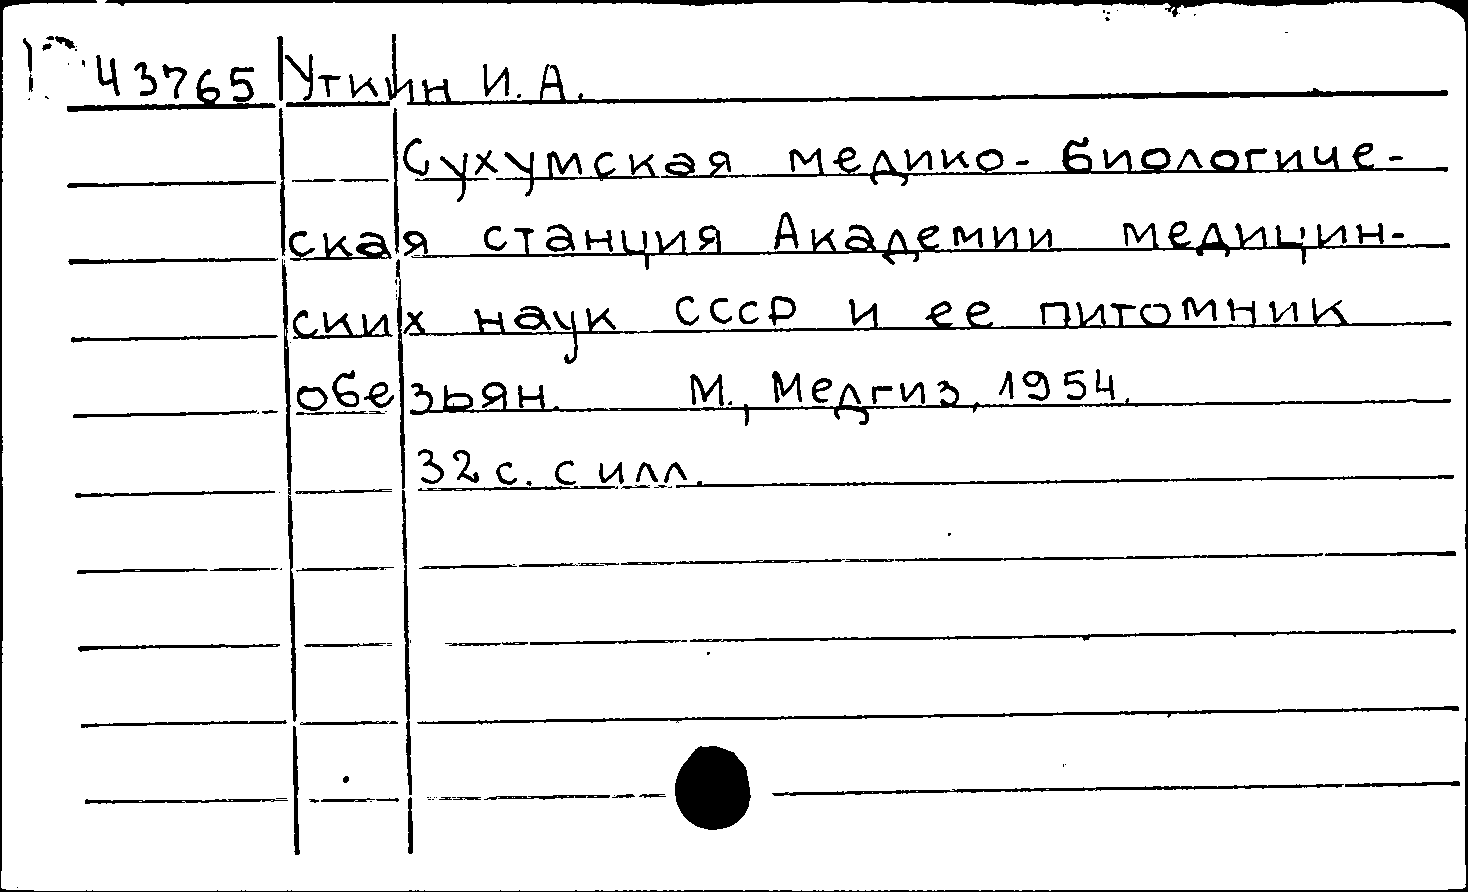 43765 Уткин И. А.
Сухумская медико-биологиче-
ская станция Академии медицин-
ских наук СССР и ее питомник
обезьян. М., Медгиз, 1954.
32 с. с илл.